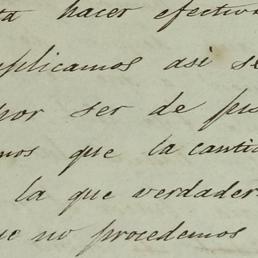 ta hacer efectiv
plicamos asi se
por ser de pu
mos que la canti
la que verdader
ue no procedemos